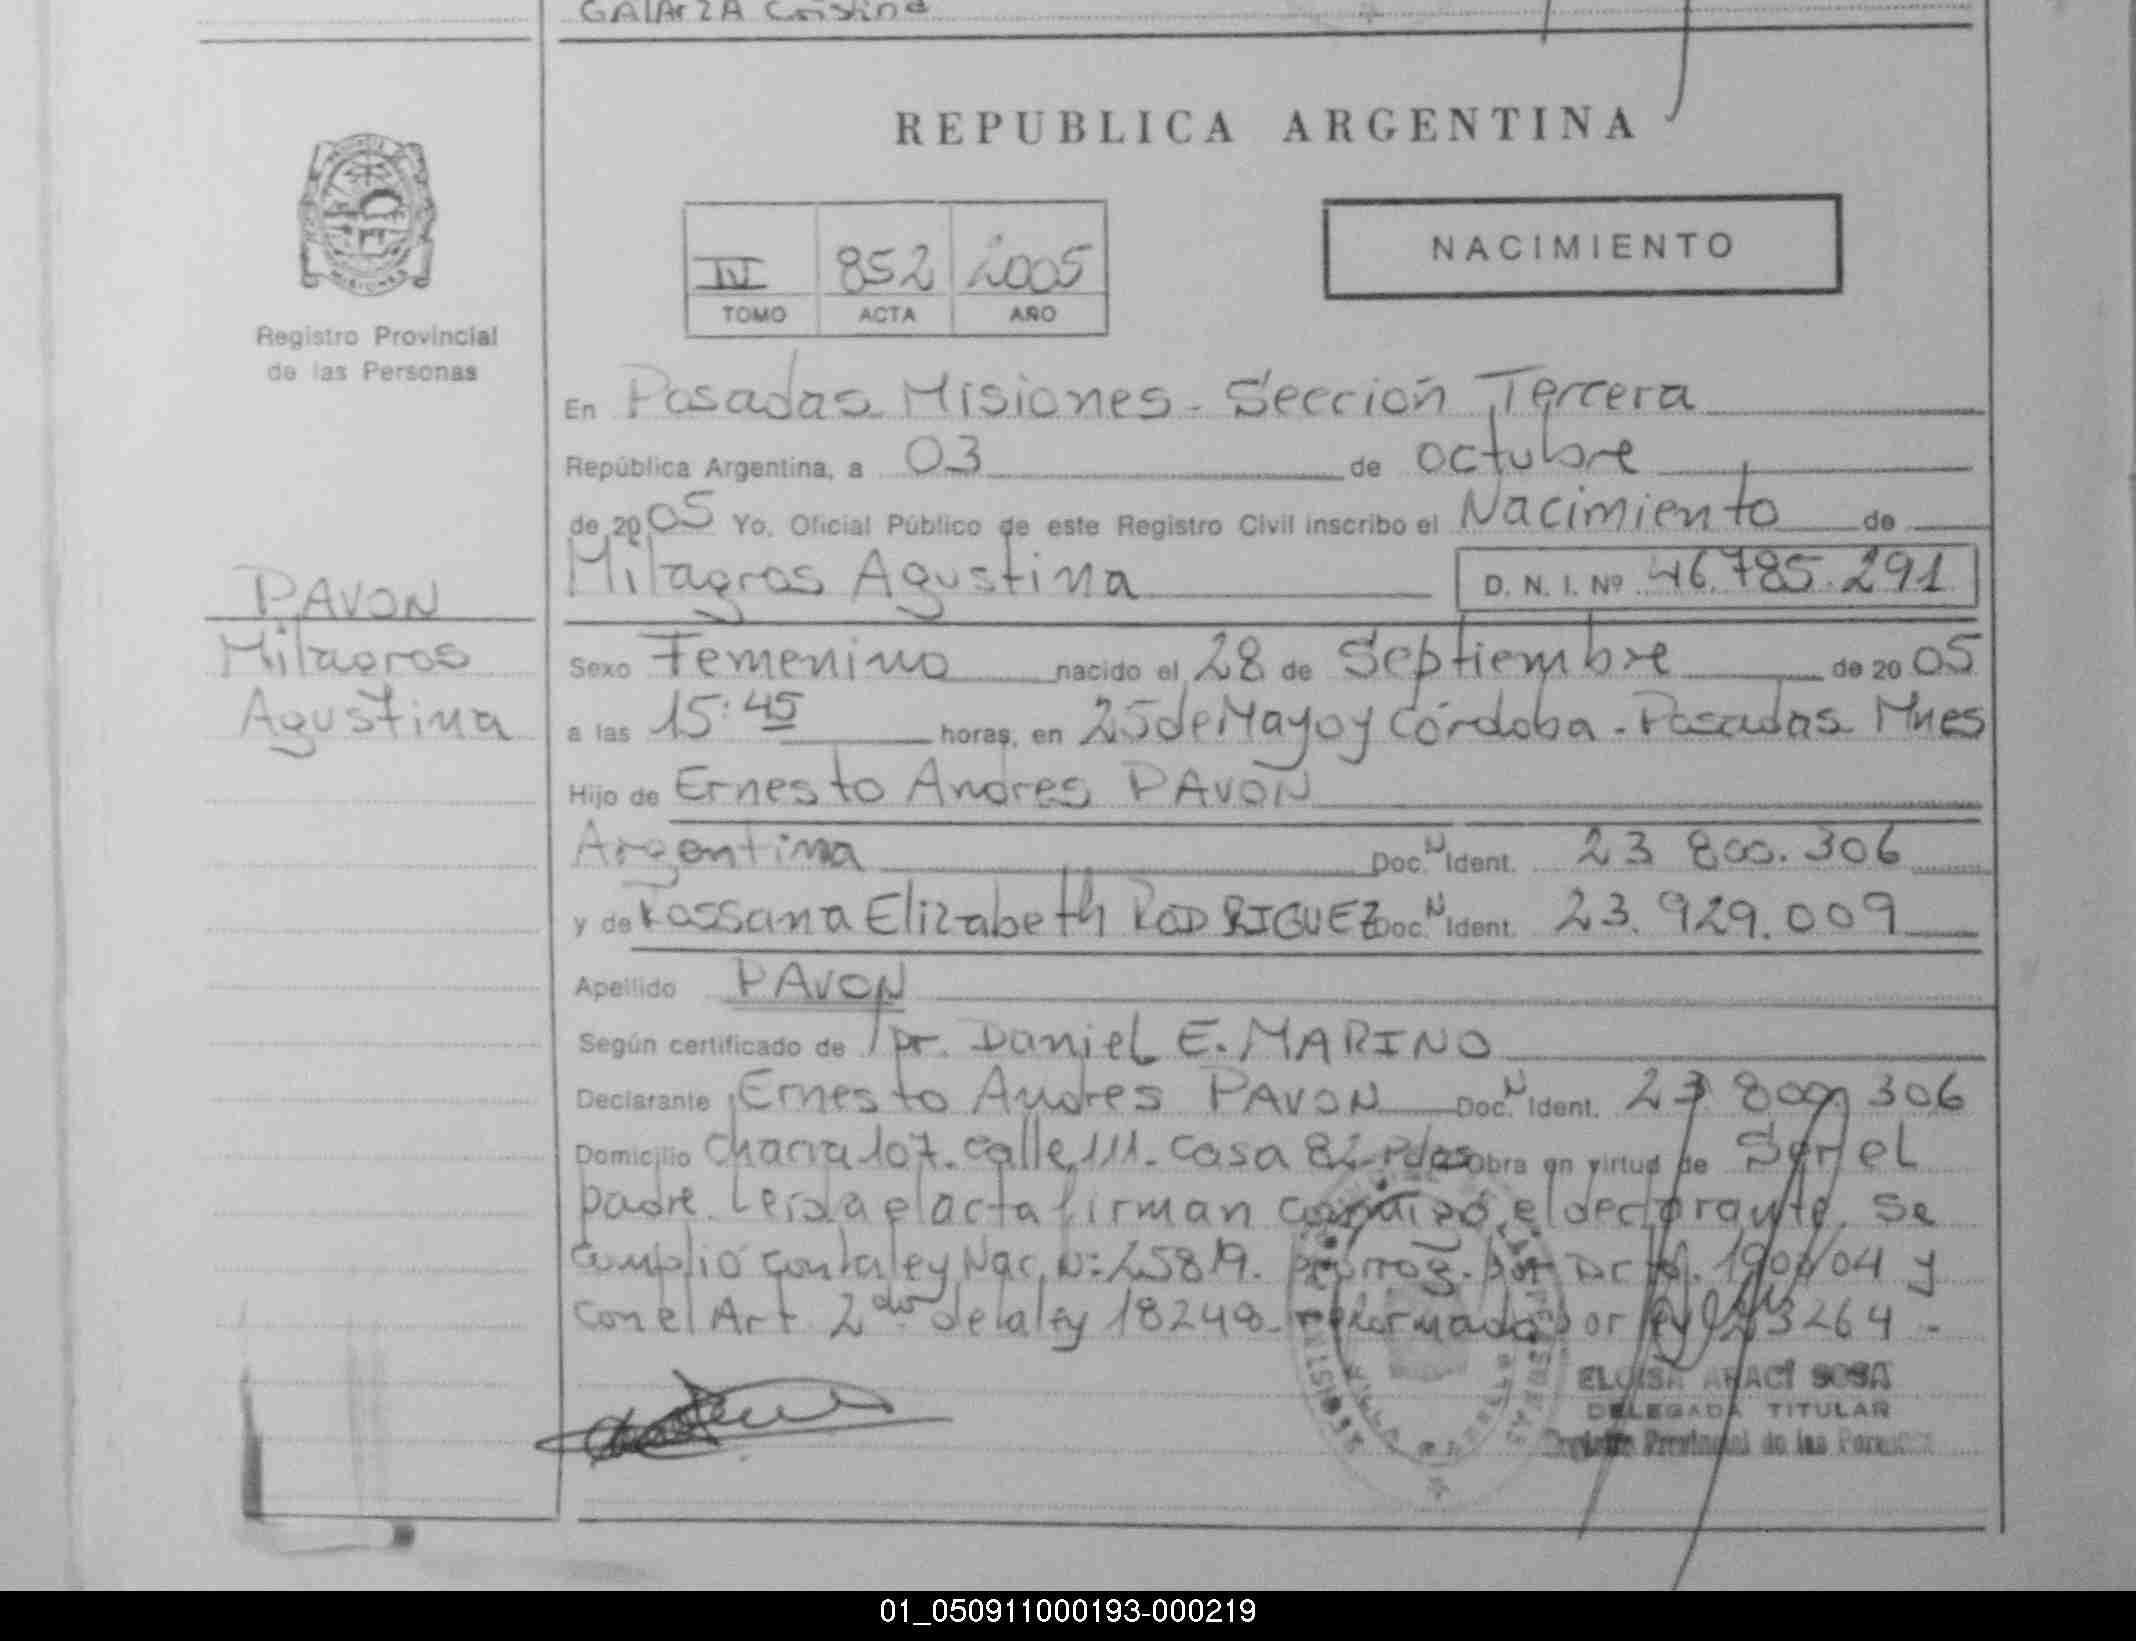 GALARZA Cristina
REPUBLICA ARGENTINA
NACIMIENTO
IV 852 2005
TOMO ACTA AÑO
MISIONES
Registro Provincial
de las Personas
En Posadas Misiones - Sección Tercera
República Argentina, a 03 de octubre
de 2005 Yo, Oficial Público de este Registro Civil inscribo el Nacimiento de
Milagros Agustina D. N. I. Nº 46.785.291
PAVON
Milagros
Agustina
Sexo Femenino nacido el 28 de Septiembre de 2005
a las 15:45 horas, en 25 de Mayo y Córdoba - Posadas Mnes
Hijo de Ernesto Andres PAVON
Argentina Doc. N Ident. 23 800.306
y de Rossana Elizabeth RODRIGUEZ Doc. N Ident. 23.929.009
Apellido PAVON
Según certificado de Dr. Daniel E. MARINO
Declarante Ernesto Andres PAVON Doc. N Ident. 23.800.306
Domicilio Chacra 107. calle 111. Casa 82 - Pdas Obra en virtud de Ser el
padre. Leída el acta firman conmigo, el declarante. Se
Cumplió con la ley Nac. Nº 25819. prorrog. por Dcto. 190/04 y
con el Art. 2do de la ley 18248 - reformada por ley 23264 -
ELOISA ARACI SOSA
DELEGADA TITULAR
Registro Provincial de las Personas
01_050911000193-000219